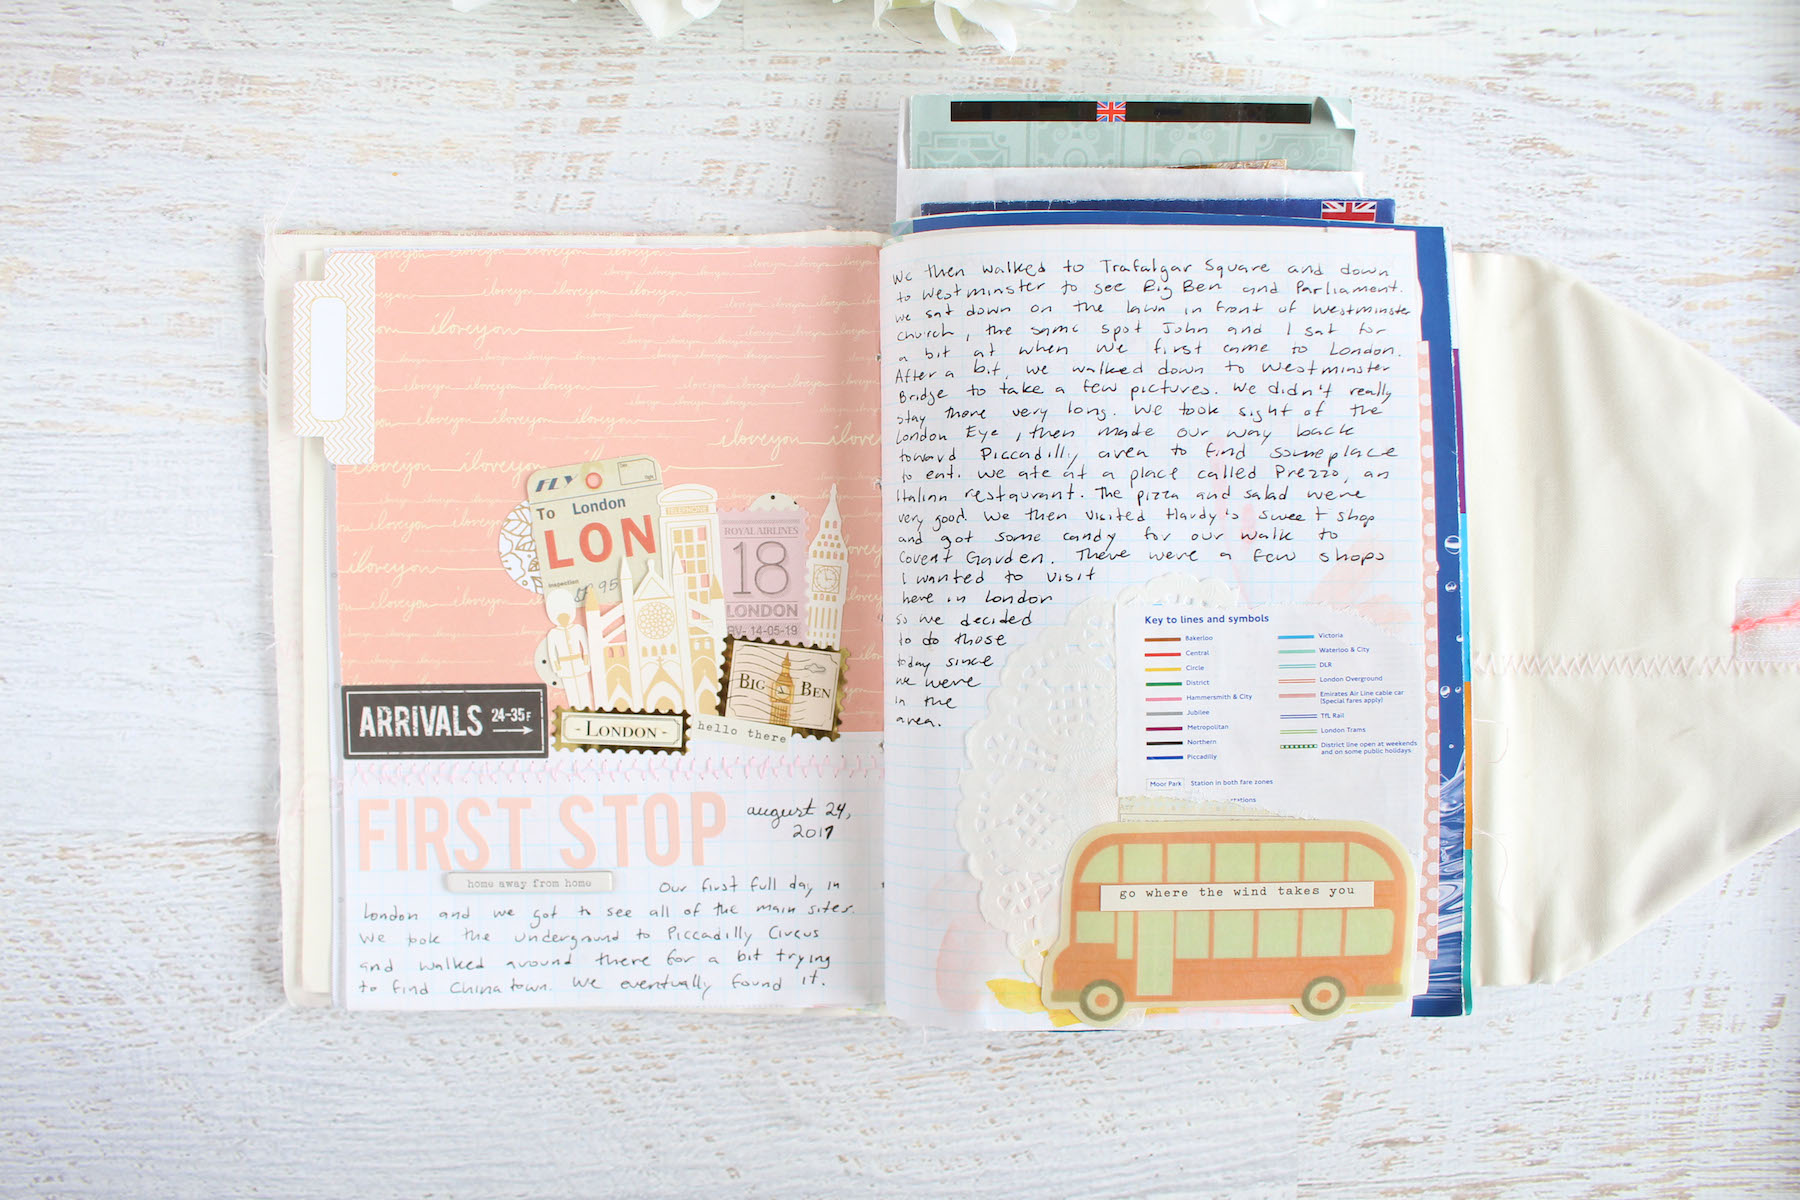 FLY
To London
LON
Inspection
95
TELEPHONE
ROYAL AIRLINES
18
LONDON
RV- 14-05-19
BIG BEN
ARRIVALS 24-35F
- LONDON -
hello there
FIRST STOP
august 24,
2017
home away from home
Our first full day in
London and we got to see all of the main sites.
We took the underground to Piccadilly Circus
and walked around there for a bit trying
to find Chinatown. We eventually found it.
We then walked to Trafalgar Square and down
to Westminster to see Big Ben and Parliament.
we sat down on the lawn in front of Westminster
church, the same spot John and I sat for
a bit at when we first came to London.
After a bit, we walked down to Westminster
Bridge to take a few pictures. We didn't really
stay there very long. We took sight of the
London Eye, then made our way back
toward Piccadilly area to find someplace
to eat. We ate at a place called Prezzo, an
Italian restaurant. The pizza and salad were
very good. We then visited Hardy's sweet shop
and got some candy for our walk to
Covent Garden. There were a few shops
I wanted to visit
here in London
so we decided
to do those
today since
we were
in the
area.
Key to lines and symbols
Bakerloo
Central
Circle
District
Hammersmith & City
Jubilee
Metropolitan
Northern
Piccadilly
Victoria
Waterloo & City
DLR
London Overground
Emirates Air Line cable car
(Special fares apply)
TfL Rail
London Trams
District line open at weekends
and on some public holidays
Moor Park Station in both fare zones
go where the wind takes you